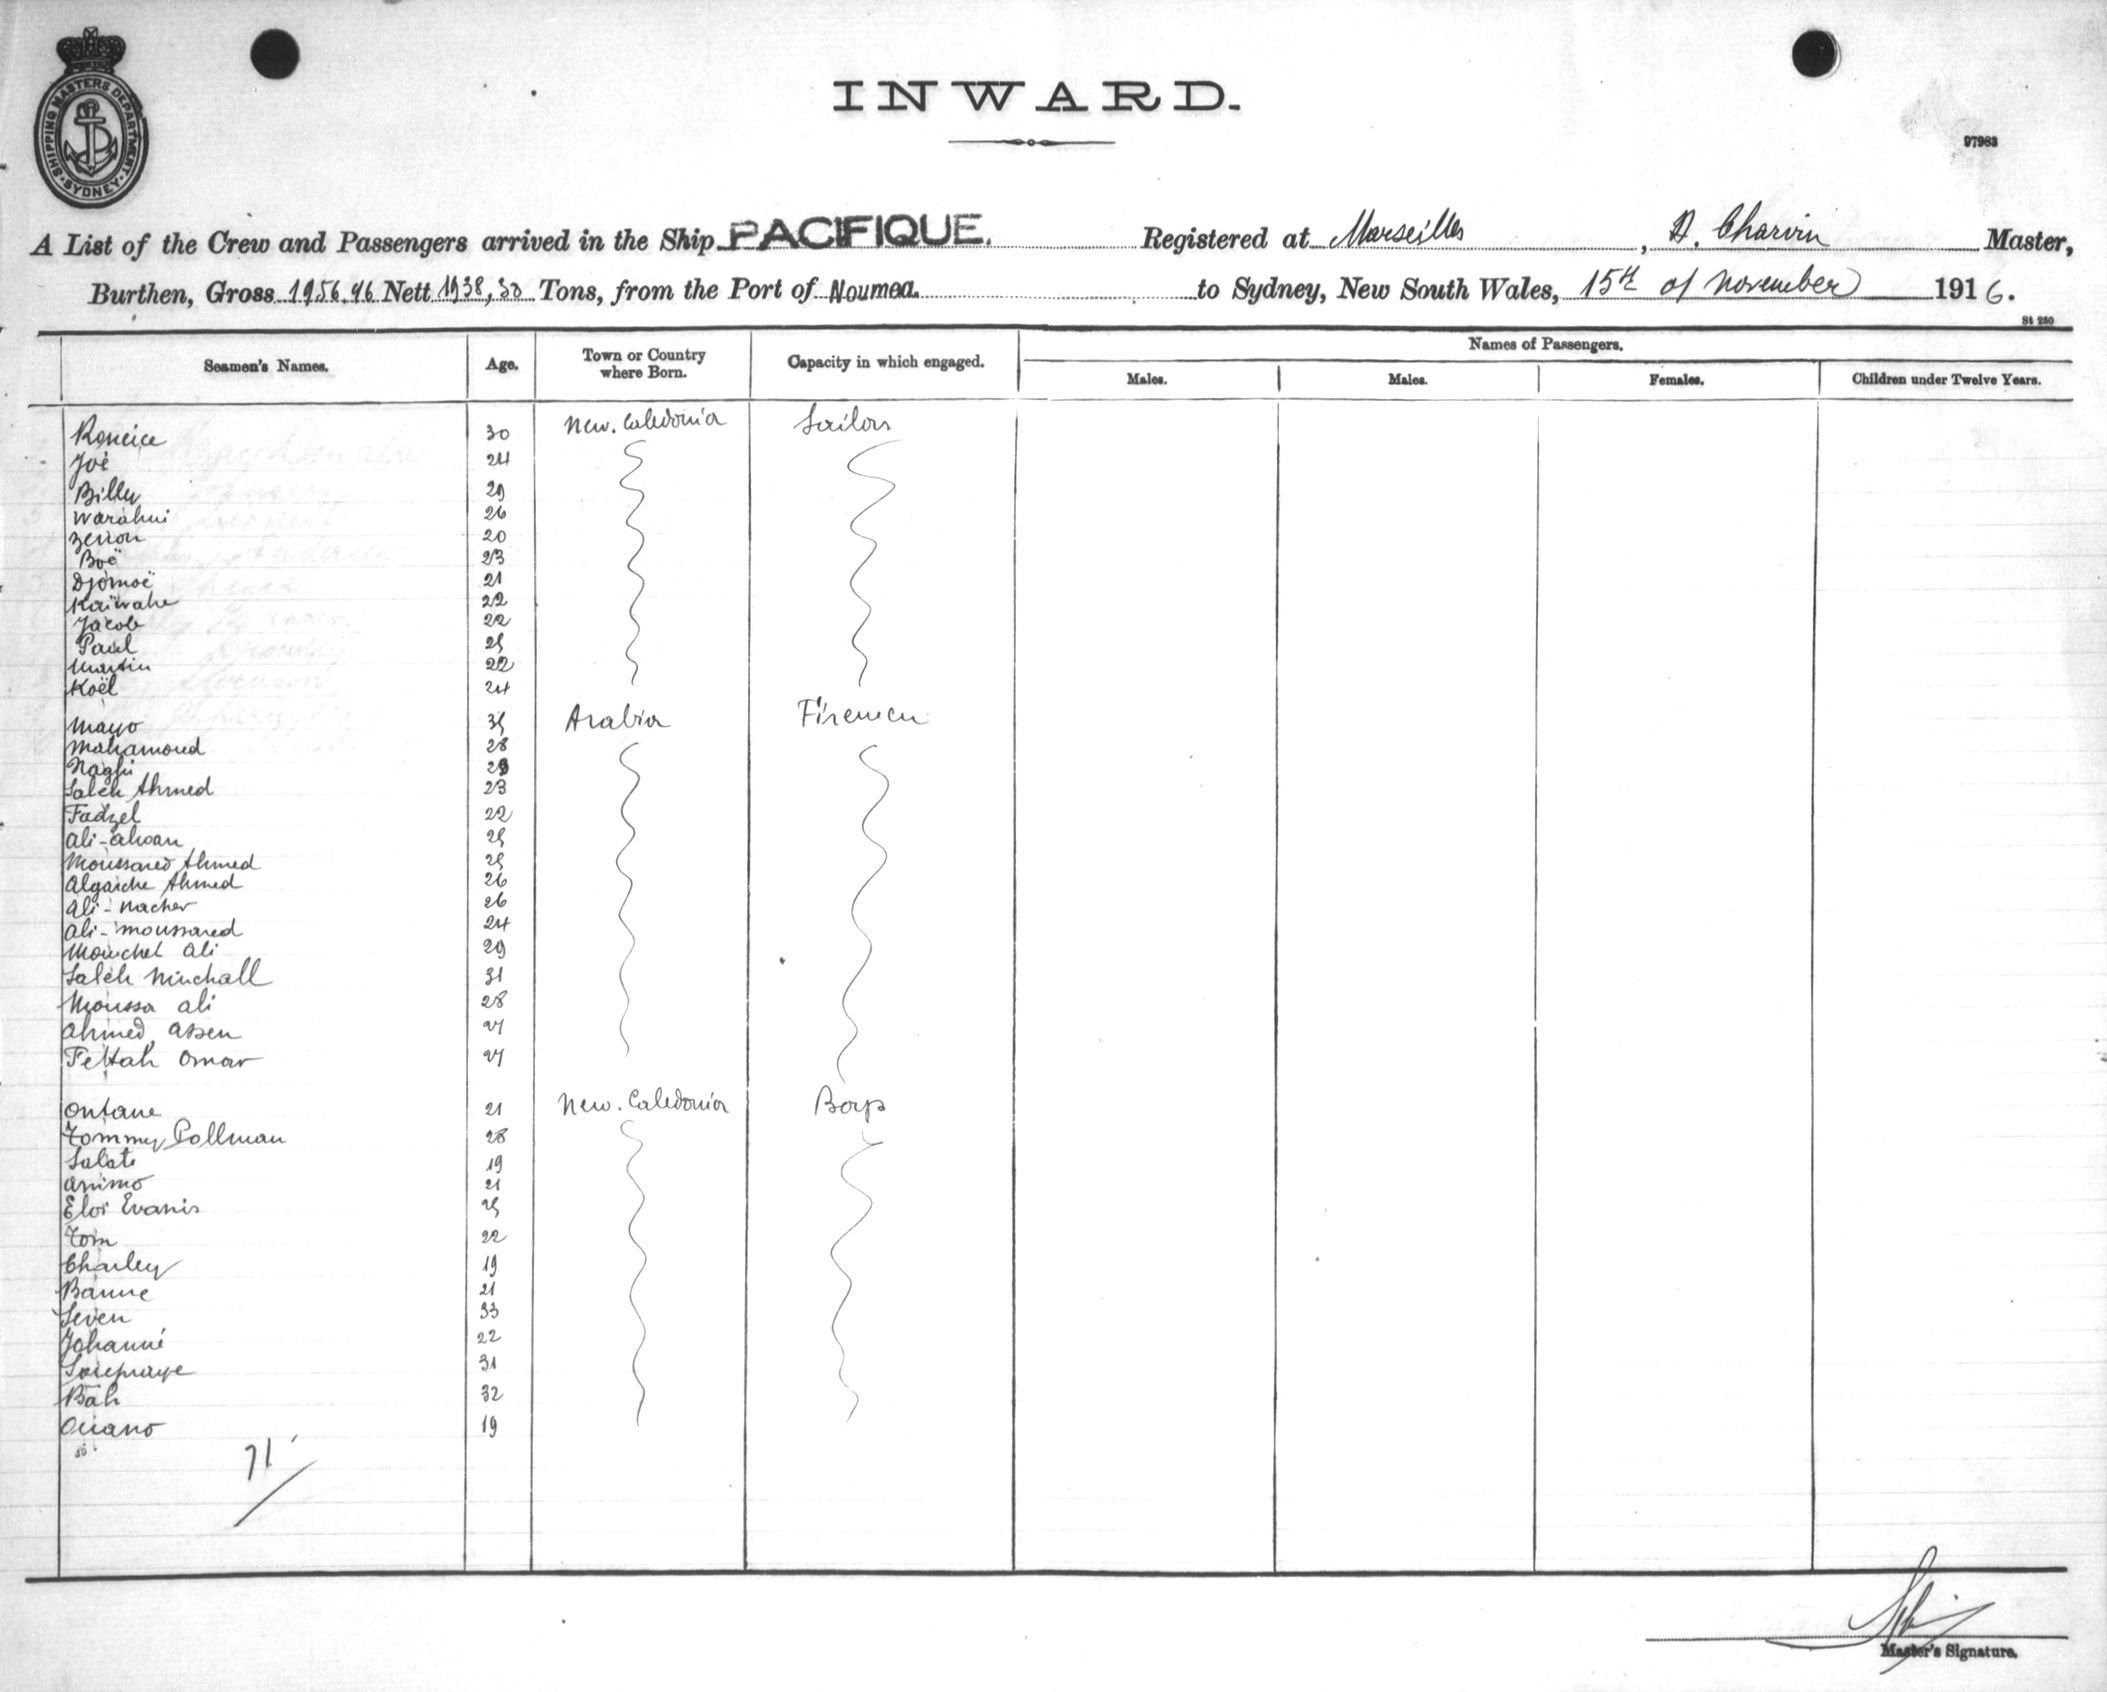 SHIPPING MASTERS DEPARTMENT. SYDNEY
INWARD.
97983
A List of the Crew and Passengers arrived in the Ship PACIFIQUE. Registered at Marseilles, A. Charvin Master,
Burthen, Gross 1956.46 Nett 1938,30 Tons, from the Port of Noumea to Sydney, New South Wales, 15th of November 1916.
St 250
Seamen's Names. Age. Town or Country where Born. Capacity in which engaged. Names of Passengers.
Males. Males. Females. Children under Twelve Years.
30 New. Caledonia Sailors
Joé 24
Billy 29
Warahui 26
20
Boë 23
Djomoë 21
Kaïwahe 22
Jacob 22
Paul 25
Martin 22
Koël 24
Mayo 35 Arabia Firemen
Mahamoud 28
Naghi
Saleh Ahmed 23
Fadzel 22
Ali- 25
Moussared Ahmed 25
Algaiche Ahmed 26
Ali-Nacher 26
Ali-Moussared 24
Mouchel Ali 29
Saleh 31
Moussa Ali 28
Ahmed, Assen
Fettah Omar
Ontane 21 New. Caledonia Boys
Tommy Pollman 28
Salati 19
Animo 21
Eloi Evanis 25
Tom 22
Charley 19
Banne 21
Seven 33
Johanné 22
31
Bah 32
19
71
Master's Signature.